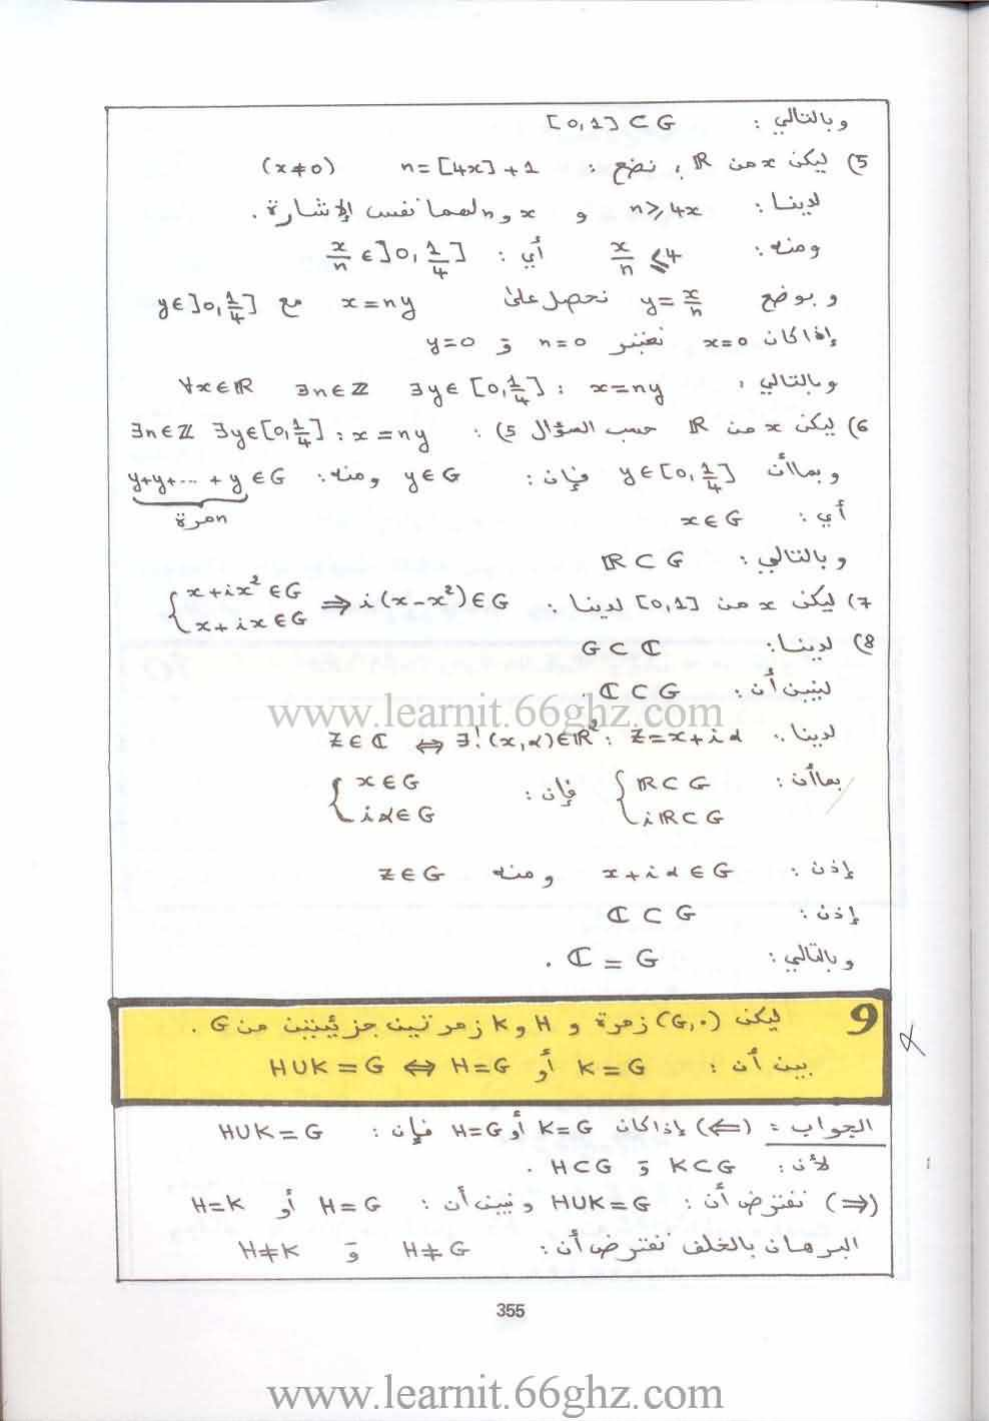 وبالتالي : [0,1] ⊂ G
5) ليكن x من ℝ ، نضع : n = [4x] + 1 (x≠0)
لدينا : n ⩾ 4x و x و n لهما نفس الإشارة .
ومنه : x/n ⩽ 4 أي : x/n ∈ ]0, 1/4]
و بوضع y = x/n نحصل على x = ny مع y ∈ ]0, 1/4]
إذا كان x=0 نعتبر n=0 و y=0
وبالتالي : ∀x∈ℝ ∃n∈ℤ ∃y∈[0, 1/4] : x=ny
6) ليكن x من ℝ حسب السؤال 5) : ∃n∈ℤ ∃y∈[0, 1/4] : x=ny
وبما أن y∈[0, 1/4] فإن : y∈G ومنه : y+y+...+y ∈ G
n مرة
أي : x∈G
وبالتالي : ℝ ⊂ G
7) ليكن x من [0,1] لدينا : { x+ix² ∈ G , x+ix ∈ G ⇒ i(x-x²) ∈ G
8) لدينا : G ⊂ ℂ
لنبين أن : ℂ ⊂ G .
www.learnit.66ghz.com
لدينا : z∈ℂ ⇔ ∃!(x,α)∈ℝ² : z=x+iα
بما أن : { ℝ⊂G , iℝ⊂G فإن : { x∈G , iα∈G
إذن : x+iα∈G ومنه z∈G
إذن : ℂ ⊂ G
وبالتالي : ℂ = G .
9 ليكن (G,·) زمرة و H و K زمرتين جزئيتين من G .
بين أن : K=G أو H=G ⇔ H∪K=G
الجواب : (⇐) إذا كان K=G أو H=G فإن : H∪K=G
لأن : K⊂G و H⊂G .
(⇒) نفترض أن : H∪K=G و نبين أن : H=G أو H=K
البرهان بالخلف نفترض أن : H≠G و H≠K
355
www.learnit.66ghz.com